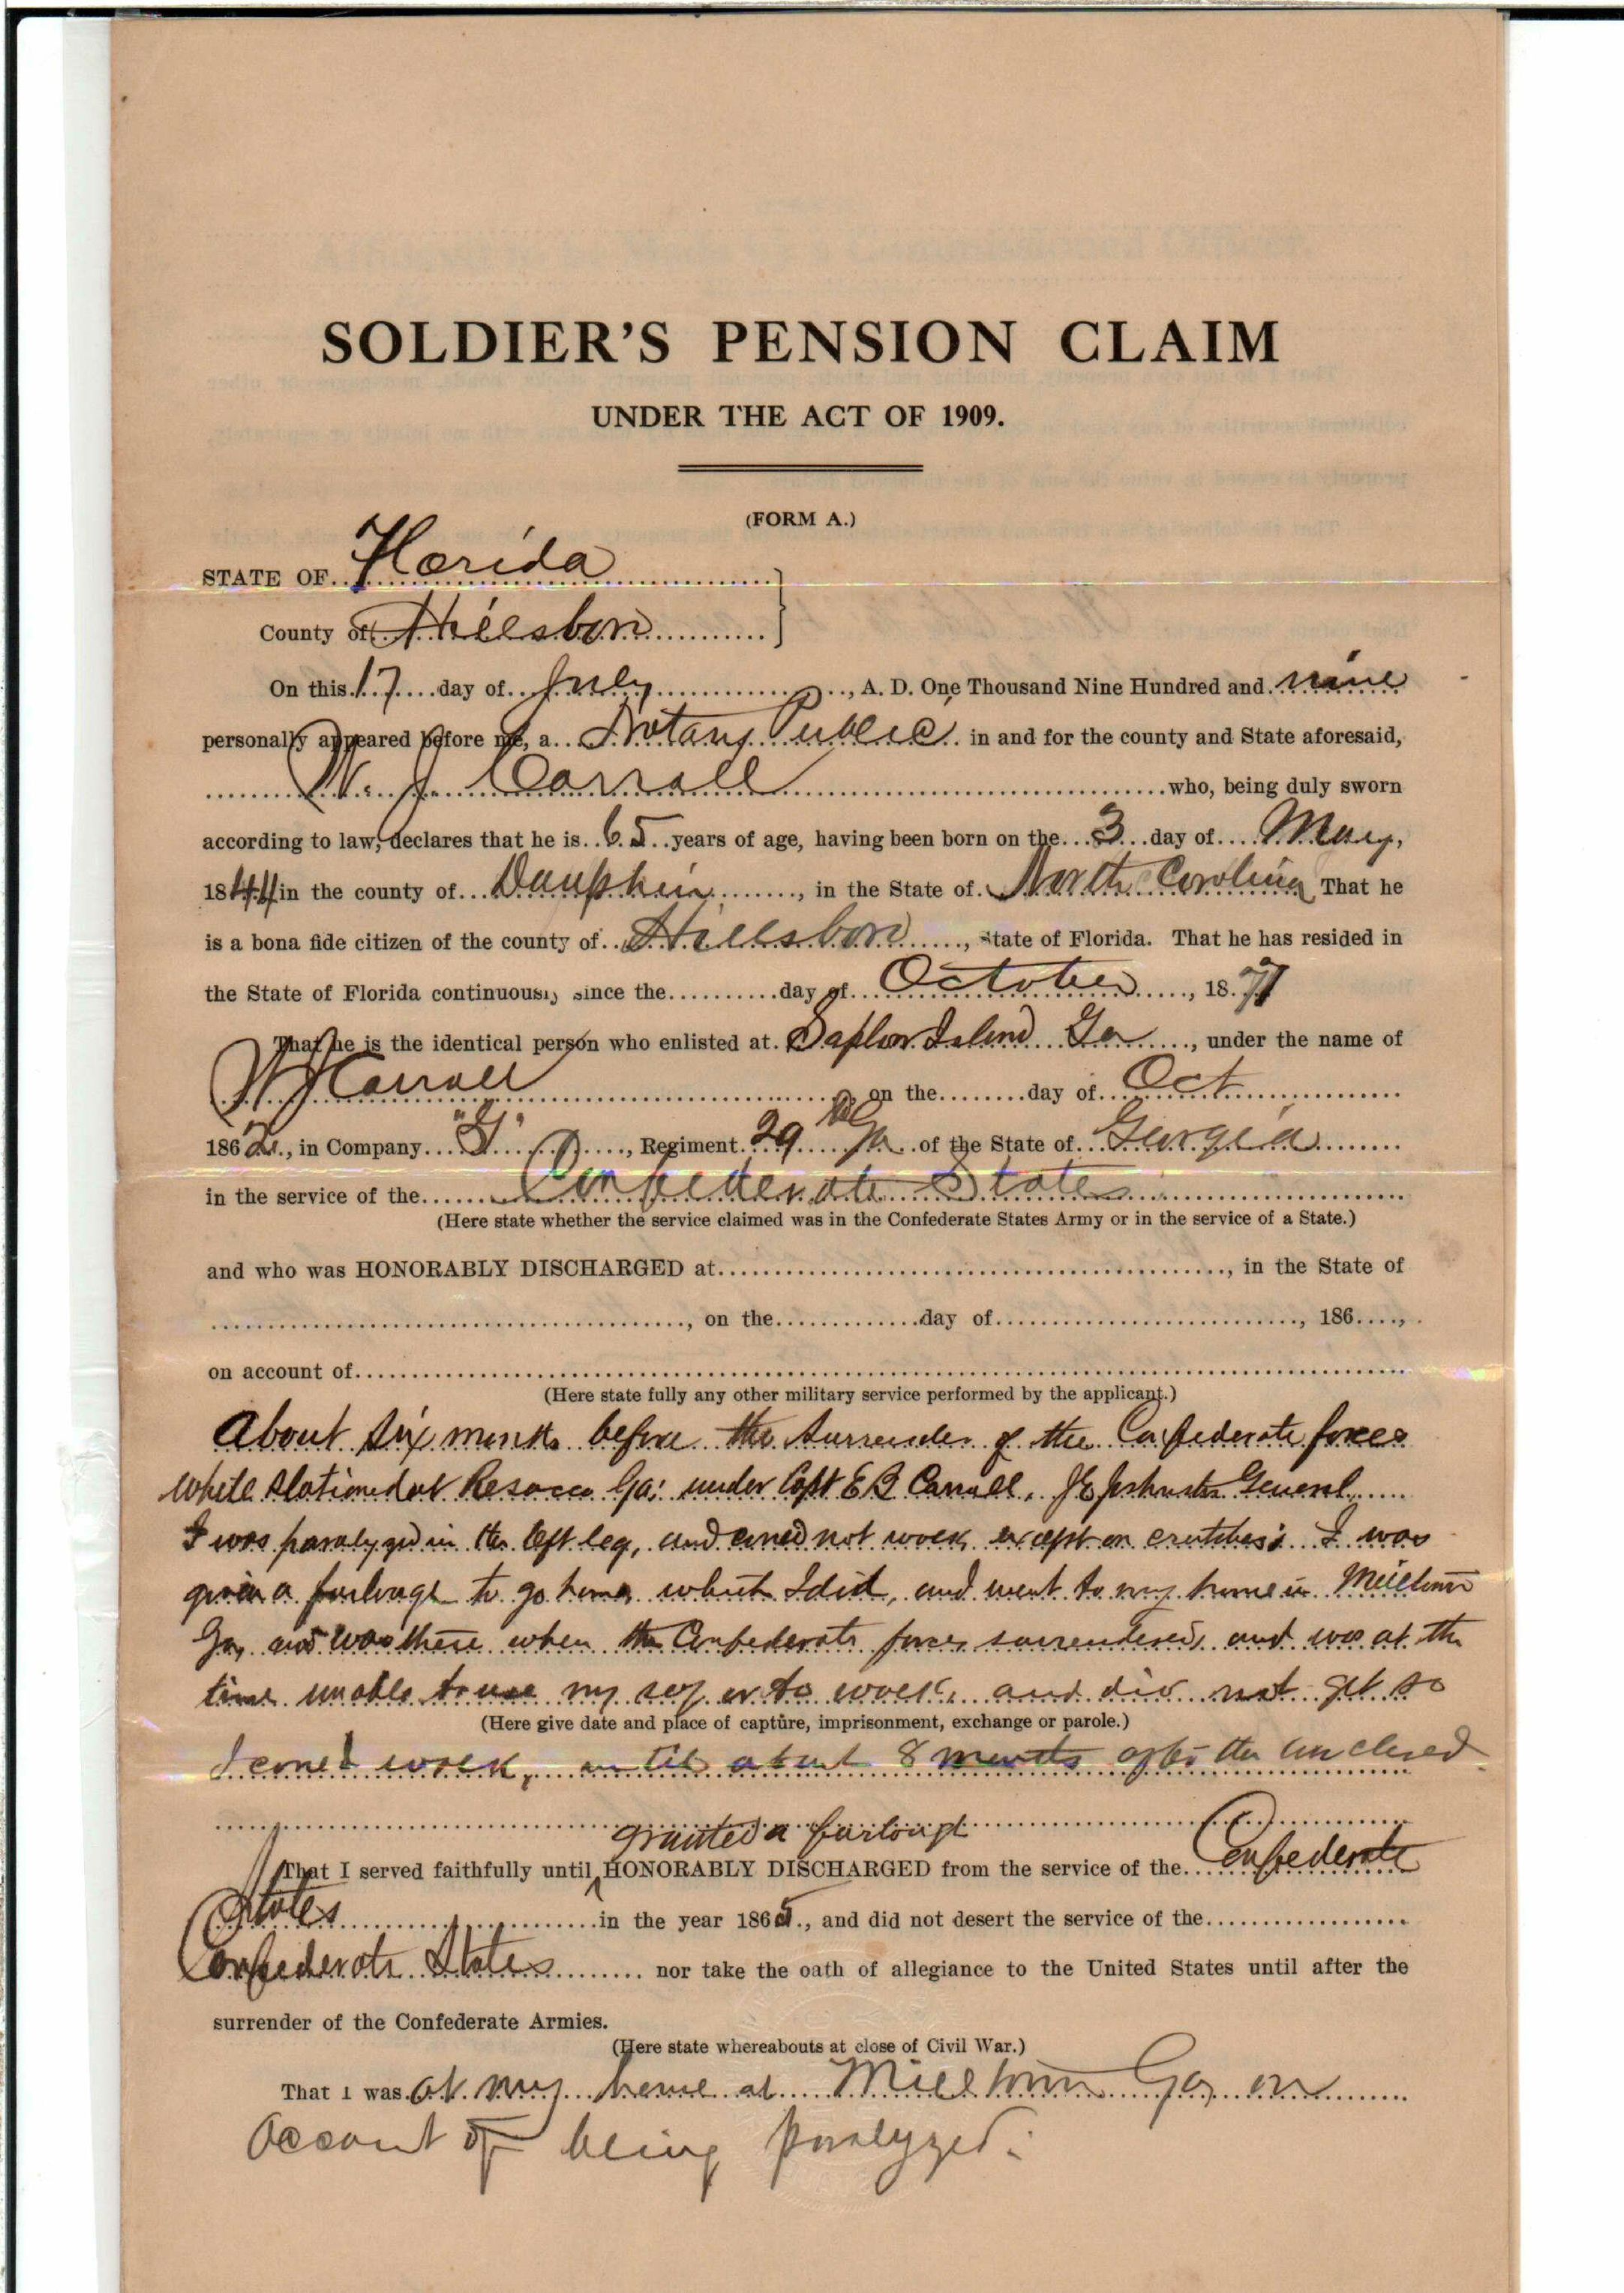 SOLDIER'S PENSION CLAIM
UNDER THE ACT OF 1909.
(FORM A.)
STATE OF Florida
County of Hillsboro
On this 17 day of July, A. D. One Thousand Nine Hundred and nine
personally appeared before me, a Notary Public in and for the county and State aforesaid,
W. J. Carroll who, being duly sworn
according to law, declares that he is 65 years of age, having been born on the 3 day of May,
1844 in the county of Dauphin, in the State of North Carolina That he
is a bona fide citizen of the county of Hillsboro, State of Florida. That he has resided in
the State of Florida continuously since the day of October, 1871
That he is the identical person who enlisted at Saplor Island Ga, under the name of
W J Carroll on the day of Oct
1862, in Company "G", Regiment 29th Ga of the State of Georgia
in the service of the Confederate States
(Here state whether the service claimed was in the Confederate States Army or in the service of a State.)
and who was HONORABLY DISCHARGED at, in the State of
, on the day of, 186,
on account of
(Here state fully any other military service performed by the applicant.)
About six months before the surrender of the Confederate forces
while stationed at Resacca Ga; under Capt E B Carroll, J E Johnston General
I was paralyzed in the left leg, and could not walk except on crutches; I was
given a furlough to go home, which I did, and went to my home in Milltown
Ga, and was there when the Confederate forces surrendered, and was at the
time unable to use my leg or to walk, and did not get so
(Here give date and place of capture, imprisonment, exchange or parole.)
I could walk, until about 8 months after the war closed
granted a furlough
That I served faithfully until HONORABLY DISCHARGED from the service of the Confederate
States in the year 1865, and did not desert the service of the
Confederate States nor take the oath of allegiance to the United States until after the
surrender of the Confederate Armies.
(Here state whereabouts at close of Civil War.)
That I was at my home at Milltown Ga, on
account of being paralyzed.